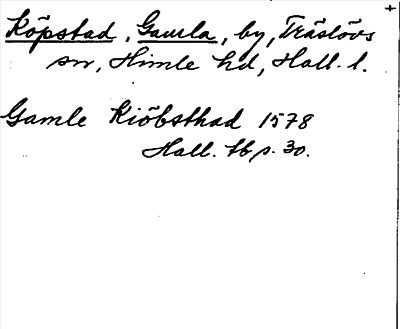 Köpstad, Gamla, by, Träslövs
sn, Himle hd, Hall. l.
Gamle Kiöbsthad 1578
Hall. tb p. 30.